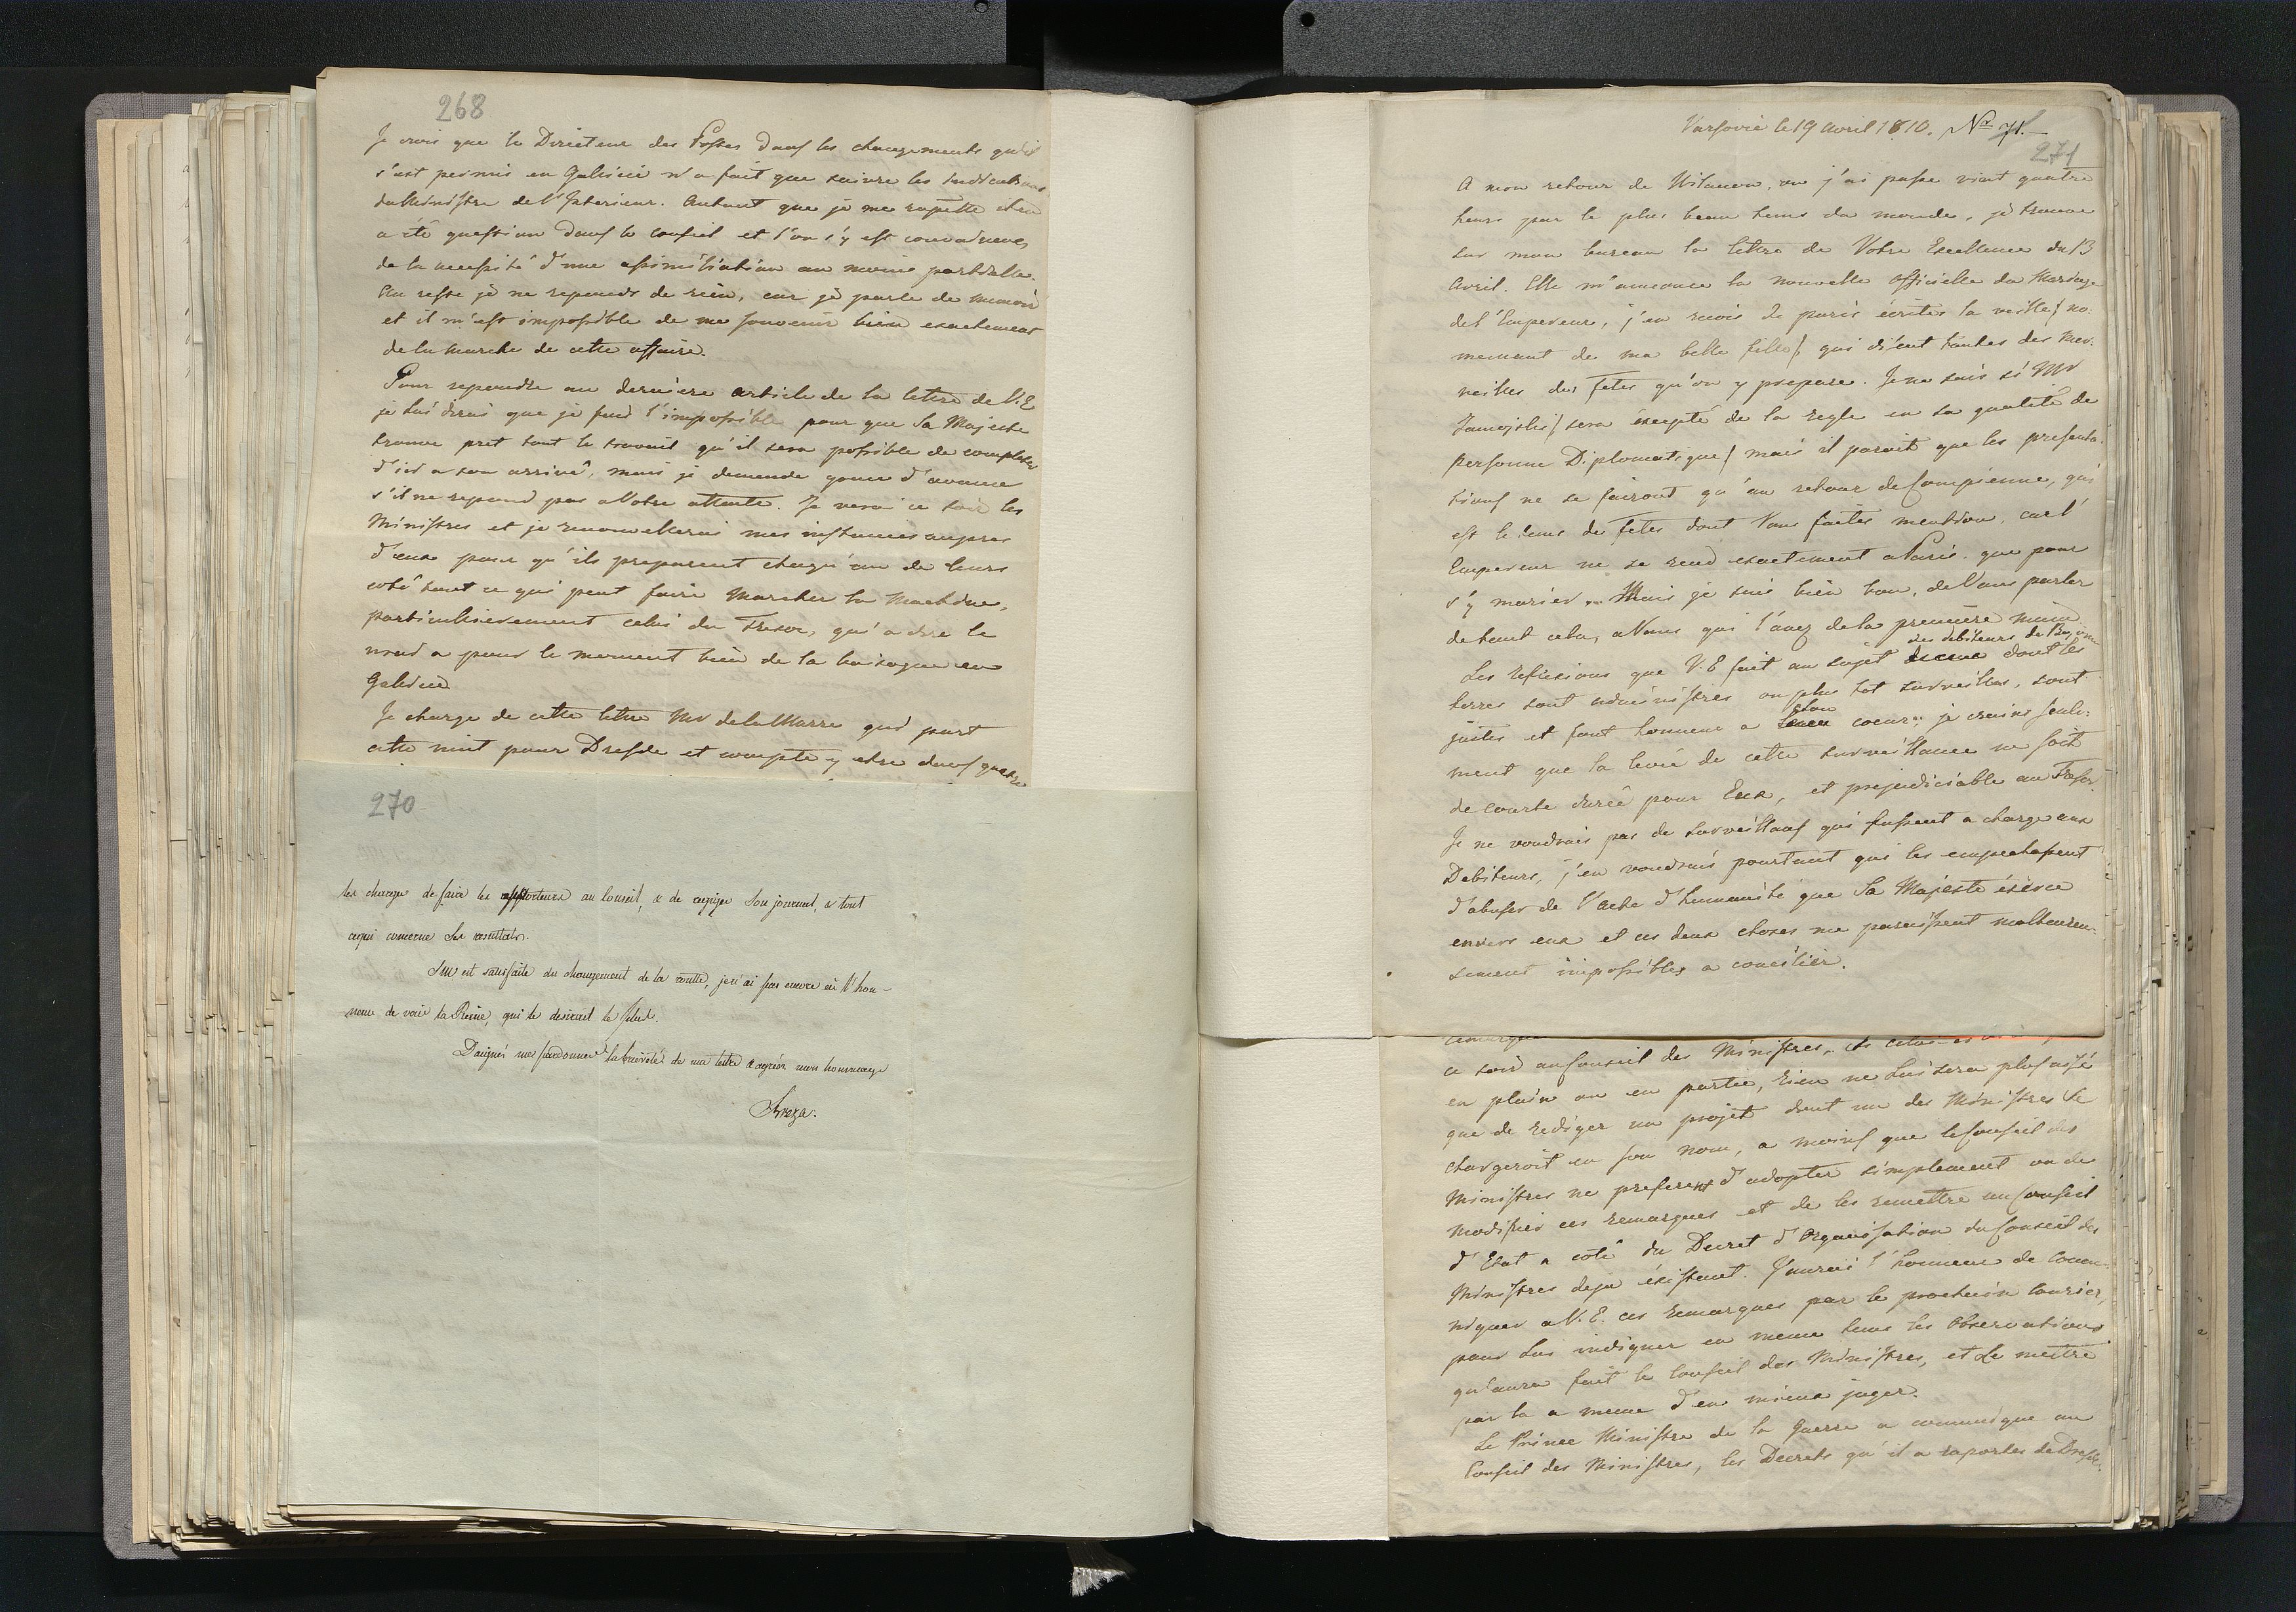 268
Je crois que le Directeur des Postes dans les changements qu'il
s'est permis en Galicie n'a fait que suivre les indications
du Ministre de l'Interieur. Autant que je me rapelle il en
a été question dans le conseil et l'on s'y est convaincu
de la necessité d'une assimiliation au moins partielle.
Au reste je ne reponds de rien, car je parle de memoire
et il m'est impossible de me souvenir bien exactement
de la marche de cette affaire.
Pour repondre au derniere article de la lettre de V. E
je lui dirai que je fend l'impossible pour que Sa Majesté
trouve pret tout le travail qu'il sera possible de completer
d'ici a son arrivé, mais je demande grace d'avance
s'il ne repond pas a Votre attente. Je verai ce soir les
Ministres et je renouvellerai mes instances aupres
d'eux pour qu'ils preparent chaqu'un de leurs
coté tout ce qui peut faire marcher la machine,
particulierement celui du Tresor, qui a dire le
vrai a pour le moment bien de la besogne en
Galicie.
Je charge de cette lettre Mr de la Marre qui part
cette nuit pour Dresde et compte y etre dans quatre
270
les charge de faire les rapporteurs au Conseil, & de rediger Son journal, & tout
ce qui concerne Ses resultats.
SM est satisfaite du changement de la routte, je n'ai pas encore eu l'hon-
neur de voir la Reine, qui le desirait le plus.
Daignés me pardonner la brieveté de ma lettre & agréér mon hommage
Breza.
Varsovie le 19 Avril 1810. No 71.
271
A mon retour de Wilanow, ou j'ai passe vint quatre
heurs par le plus beau tems du monde, je trouve
sur mon bureau la lettre de Votre Excellence du 13
Avril. Elle m'annonce la nouvelle officielle du Mariage
de l'Empereur, j'en recois de paris écrites la veille ( no-
mement de ma belle fille ) qui disent toutes des mer-
veilles des fetes qu'on y prepare. Je ne sais si Mr
Zamojski ( sera excepté de la regle en sa qualité de
Personne Diplomatique ) mais il parait que les presenta-
tions ne se fairont qu'au retour de Compienne, qui
est le tems de fetes dont Vous faites mention, car l'
Empereur ne se rend exactement a Paris que pour
s'y marier. Mais je suis bien bon, de Vous parler
de tout cela, a Vous qui l'avez de la premiere main
Les reflexions que V. E fait au sujet des debiteurs de Bayonne dont les
terres sont administres ou plus tot surveilles, sont
justes et font honneur a Son coeur, je crains seule-
ment que la levée de cette surveillance ne soit
de courte durée pour Eux, et prejudiciable au Tresor.
Je ne voudrais pas de surveillans qui fussent a charge aux
Debiteurs, j'en voudrais pourtant qui les empechassent
d'abuser de l'acte d'humanité que Sa Majesté éxerce
envers eux et ces deux choses me paraissent malheureu-
sement impossibles a concilier.
ce soir au Conseil des Ministres,
en plain ou en partie, rien ne lui sera plus aisé
que de rediger un projet dont un des Ministres se
chargeroit en son nom, a moins que le Conseil des
Ministres ne preferent d'adopter simplement ou de
modifier ces remarques et de les remettre au Conseil
d'Etat a coté du Decret d'organisation du Conseil des
Ministres deja éxistant. J'aurai l'honneur de comu-
niquer a V. E. ces remarques par le prochain Courier,
pour Lui indiquer en meme tems les observations
qu'aura fait le Conseil des Ministres, et Le mettre
par la a meme d'en mieux juger.
Le Prince Ministre de la Guerre a comunique au
Conseil des Ministres, les Decrets qu'il a raportes de Dresde.